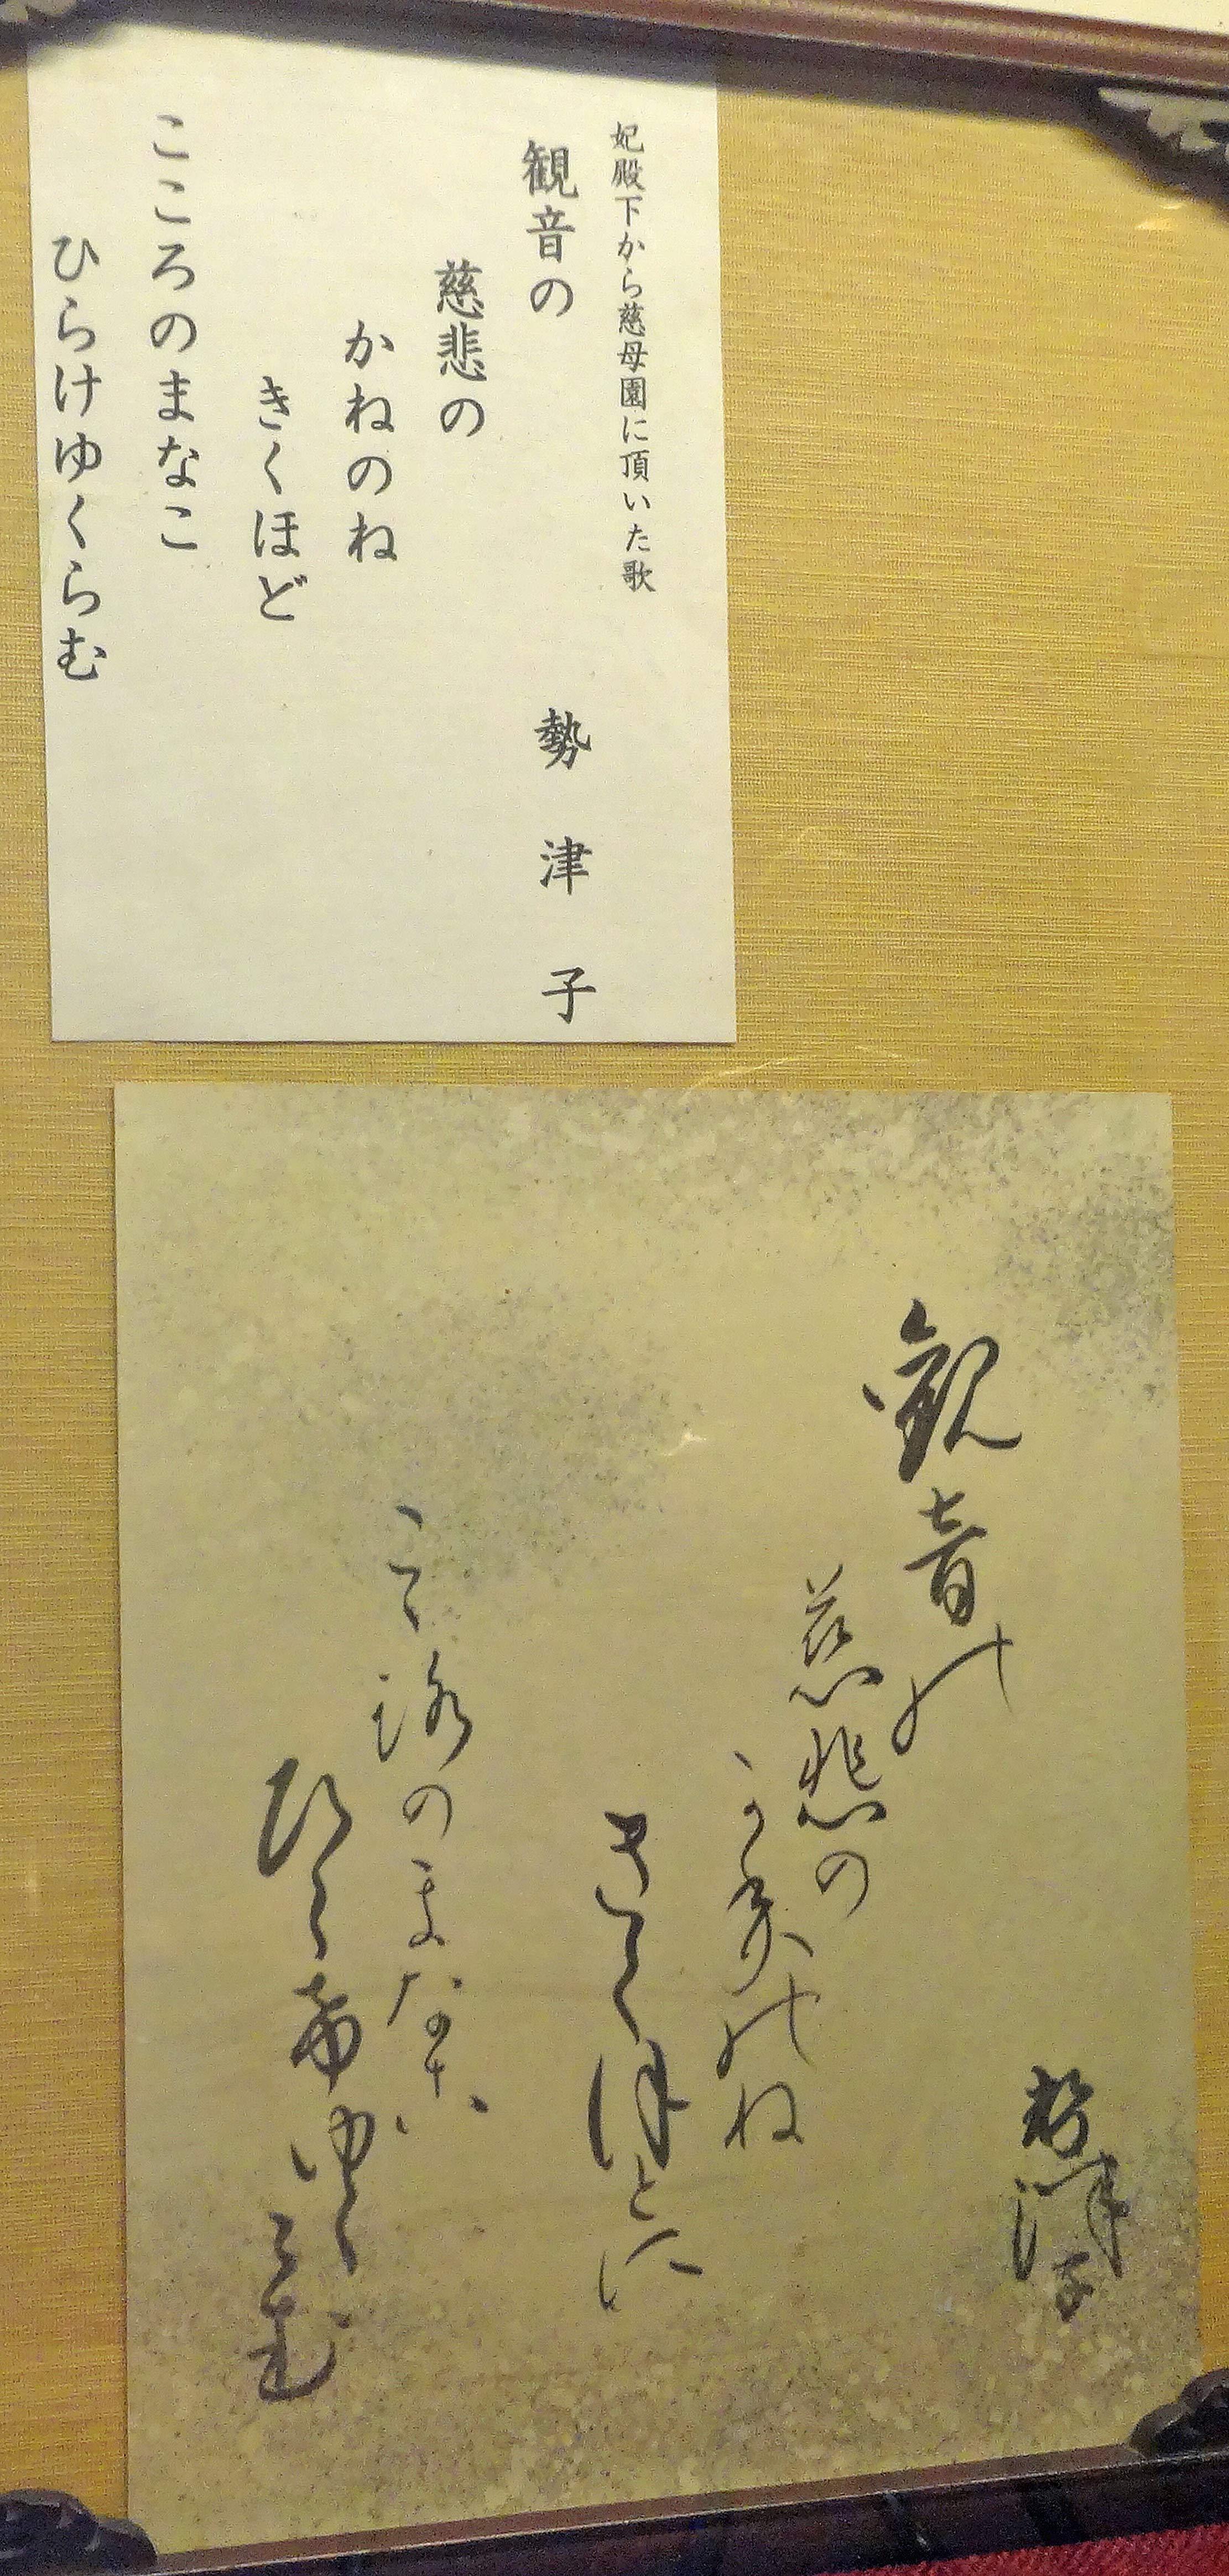 妃殿下から慈母園に頂いた歌
観音の　勢津子
慈悲の
かねのね
きくほど
こころのまなこ
ひらけゆくらむ
勢津子
観音の
慈悲の
かねのね
きくほとに
こころのまなこ
ひらけゆくらむ